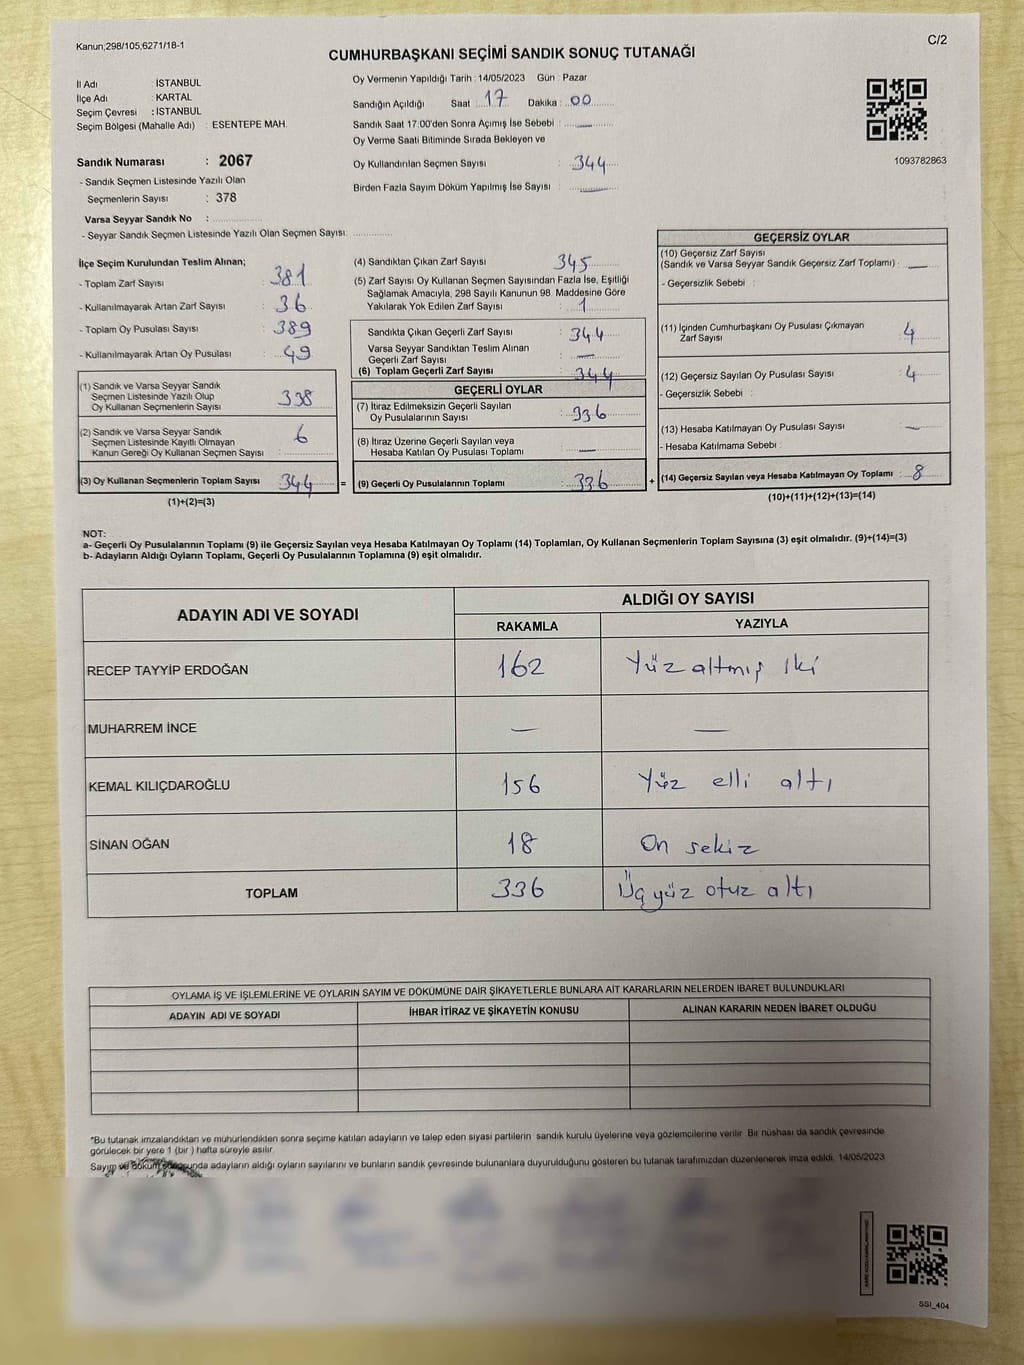 Kanun;298/105;6271/18-1
C/2
CUMHURBAŞKANI SEÇİMİ SANDIK SONUÇ TUTANAĞI
İl Adı : İSTANBUL
İlçe Adı : KARTAL
Seçim Çevresi : İSTANBUL
Seçim Bölgesi (Mahalle Adı) : ESENTEPE MAH.
Sandık Numarası : 2067
- Sandık Seçmen Listesinde Yazılı Olan
Seçmenlerin Sayısı : 378
Varsa Seyyar Sandık No :
- Seyyar Sandık Seçmen Listesinde Yazılı Olan Seçmen Sayısı:
Oy Vermenin Yapıldığı Tarih : 14/05/2023 Gün : Pazar
Sandığın Açıldığı Saat : 17 Dakika : 00
Sandık Saat 17:00'den Sonra Açımış İse Sebebi : —
Oy Verme Saati Bitiminde Sırada Bekleyen ve
Oy Kullandırılan Seçmen Sayısı : 344
Birden Fazla Sayım Döküm Yapılmış İse Sayısı : —
1093782863
İlçe Seçim Kurulundan Teslim Alınan;
- Toplam Zarf Sayısı : 381
- Kullanılmayarak Artan Zarf Sayısı : 36
- Toplam Oy Pusulası Sayısı : 389
- Kullanılmayarak Artan Oy Pusulası : 49
(1) Sandık ve Varsa Seyyar Sandık
Seçmen Listesinde Yazılı Olup
Oy Kullanan Seçmenlerin Sayısı : 338
(2) Sandık ve Varsa Seyyar Sandık
Seçmen Listesinde Kayıtlı Olmayan
Kanun Gereği Oy Kullanan Seçmen Sayısı : 6
(3) Oy Kullanan Seçmenlerin Toplam Sayısı : 344 =
(1)+(2)=(3)
(4) Sandıktan Çıkan Zarf Sayısı : 345
(5) Zarf Sayısı Oy Kullanan Seçmen Sayısından Fazla İse, Eşitliği
Sağlamak Amacıyla, 298 Sayılı Kanunun 98. Maddesine Göre
Yakılarak Yok Edilen Zarf Sayısı : 1
Sandıkta Çıkan Geçerli Zarf Sayısı : 344
Varsa Seyyar Sandıktan Teslim Alınan
Geçerli Zarf Sayısı : —
(6) Toplam Geçerli Zarf Sayısı : 344
GEÇERLİ OYLAR
(7) İtiraz Edilmeksizin Geçerli Sayılan
Oy Pusulalarının Sayısı : 336
(8) İtiraz Üzerine Geçerli Sayılan veya
Hesaba Katılan Oy Pusulası Toplamı : —
(9) Geçerli Oy Pusulalarının Toplamı : 336 +
GEÇERSİZ OYLAR
(10) Geçersiz Zarf Sayısı
(Sandık ve Varsa Seyyar Sandık Geçersiz Zarf Toplamı) : —
- Geçersizlik Sebebi :
(11) İçinden Cumhurbaşkanı Oy Pusulası Çıkmayan
Zarf Sayısı : 4
(12) Geçersiz Sayılan Oy Pusulası Sayısı : 4
- Geçersizlik Sebebi :
(13) Hesaba Katılmayan Oy Pusulası Sayısı : —
- Hesaba Katılmama Sebebi :
(14) Geçersiz Sayılan veya Hesaba Katılmayan Oy Toplamı : 8
(10)+(11)+(12)+(13)=(14)
NOT:
a- Geçerli Oy Pusulalarının Toplamı (9) ile Geçersiz Sayılan veya Hesaba Katılmayan Oy Toplamı (14) Toplamları, Oy Kullanan Seçmenlerin Toplam Sayısına (3) eşit olmalıdır. (9)+(14)=(3)
b- Adayların Aldığı Oyların Toplamı, Geçerli Oy Pusulalarının Toplamına (9) eşit olmalıdır.
ADAYIN ADI VE SOYADI
ALDIĞI OY SAYISI
RAKAMLA YAZIYLA
RECEP TAYYİP ERDOĞAN 162 Yüz altmış iki
MUHARREM İNCE — —
KEMAL KILIÇDAROĞLU 156 Yüz elli altı
SİNAN OĞAN 18 On sekiz
TOPLAM 336 Üç yüz otuz altı
OYLAMA İŞ VE İŞLEMLERİNE VE OYLARIN SAYIM VE DÖKÜMÜNE DAİR ŞİKAYETLERLE BUNLARA AİT KARARLARIN NELERDEN İBARET BULUNDUKLARI
ADAYIN ADI VE SOYADI İHBAR İTİRAZ VE ŞİKAYETİN KONUSU ALINAN KARARIN NEDEN İBARET OLDUĞU
*Bu tutanak imzalandıktan ve mühürlendikten sonra seçime katılan adayların ve talep eden siyasi partilerin sandık kurulu üyelerine veya gözlemcilerine verilir. Bir nüshası da sandık çevresinde
görülecek bir yere 1 (bir ) hafta süreyle asılır.
Sayım ve döküm sonucunda adayların aldığı oyların sayılarını ve bunların sandık çevresinde bulunanlara duyurulduğunu gösteren bu tutanak tarafımızdan düzenlenerek imza edildi. 14/05/2023
SSI_404